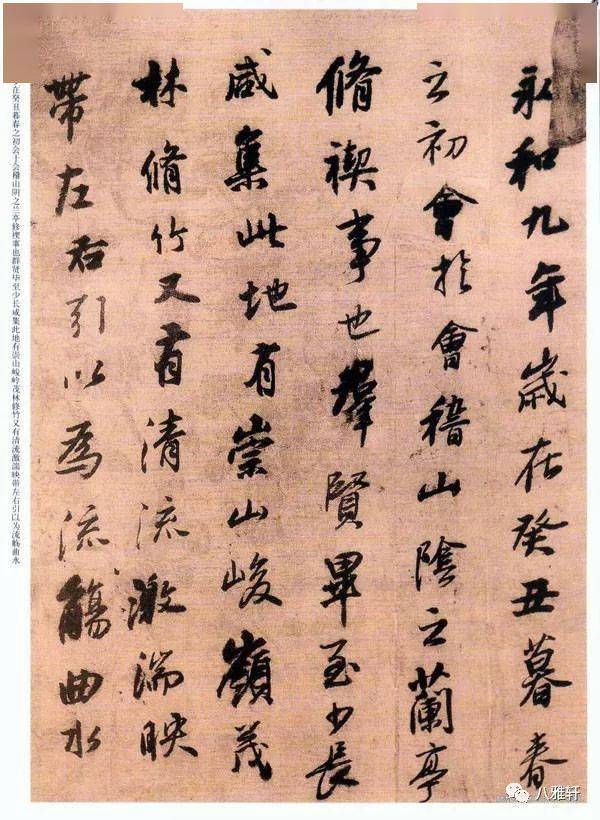 永和九年歲在癸丑暮春
之初會於會稽山陰之蘭亭
脩禊事也羣賢畢至少長
咸集此地有崇山峻嶺茂
林脩竹又有清流激湍映
帶左右引以為流觴曲水
在癸丑暮春之初会于会稽山阴之兰亭修禊事也群贤毕至少长咸集此地有崇山峻岭茂林修竹又有清流激湍映带左右引以为流觞曲水
八雅轩